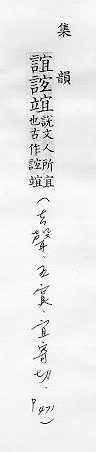 集韻
誼竩說文人所宜
也古作竩
(去聲·五寘·宜寄切·P471)